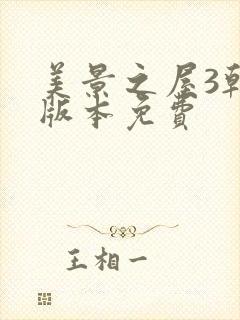 美景之屋3韩
版本免费
王相一